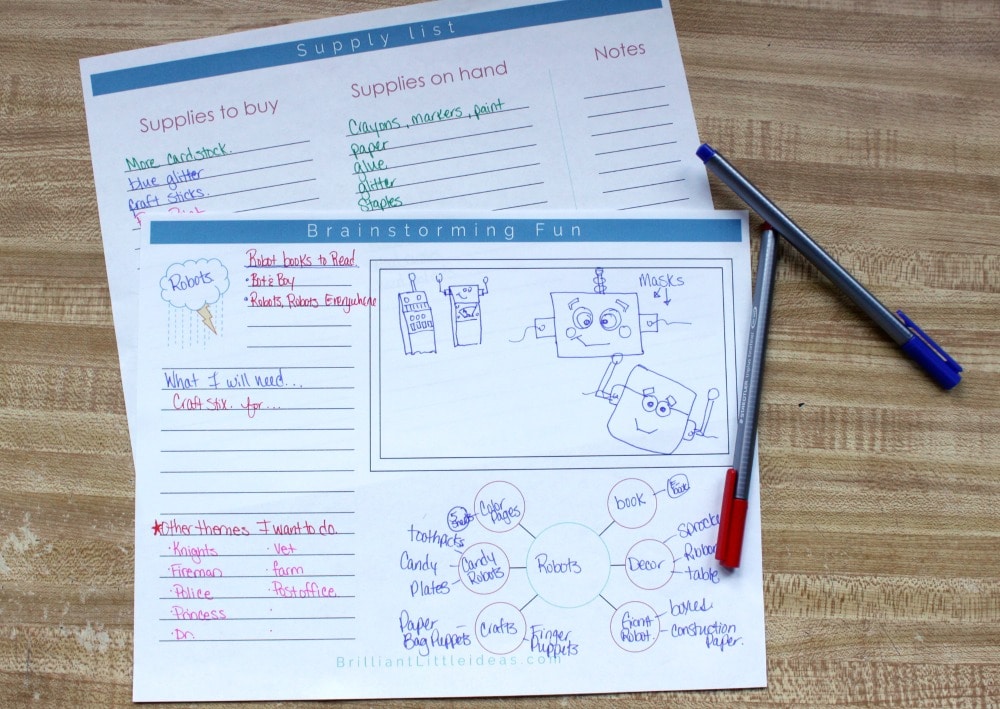 Supply list
Supplies to buy
More cardstock.
blue glitter
craft sticks.
Supplies on hand
Crayons, markers, paint
paper
glue
glitter
Staples
Notes
Brainstorming Fun
Robots
Robot books to Read.
• Bot & Boy
• Robots, Robots Everywhere
What I will need...
Craft stix. for...
Other themes I want to do.
· Knights
· Fireman
· Police
· Princess
· Dr.
· Vet
· farm
· Post office.
Masks
Robots
Color Pages
5 sheets
book
Decor
Sprocke
Ribbon
table
Giant Robot.
boxes
construction Paper.
Crafts
Finger Puppets
Paper Bag Puppets
Candy Robots
toothpicks
Candy
Plates
BrilliantLittleideas.com